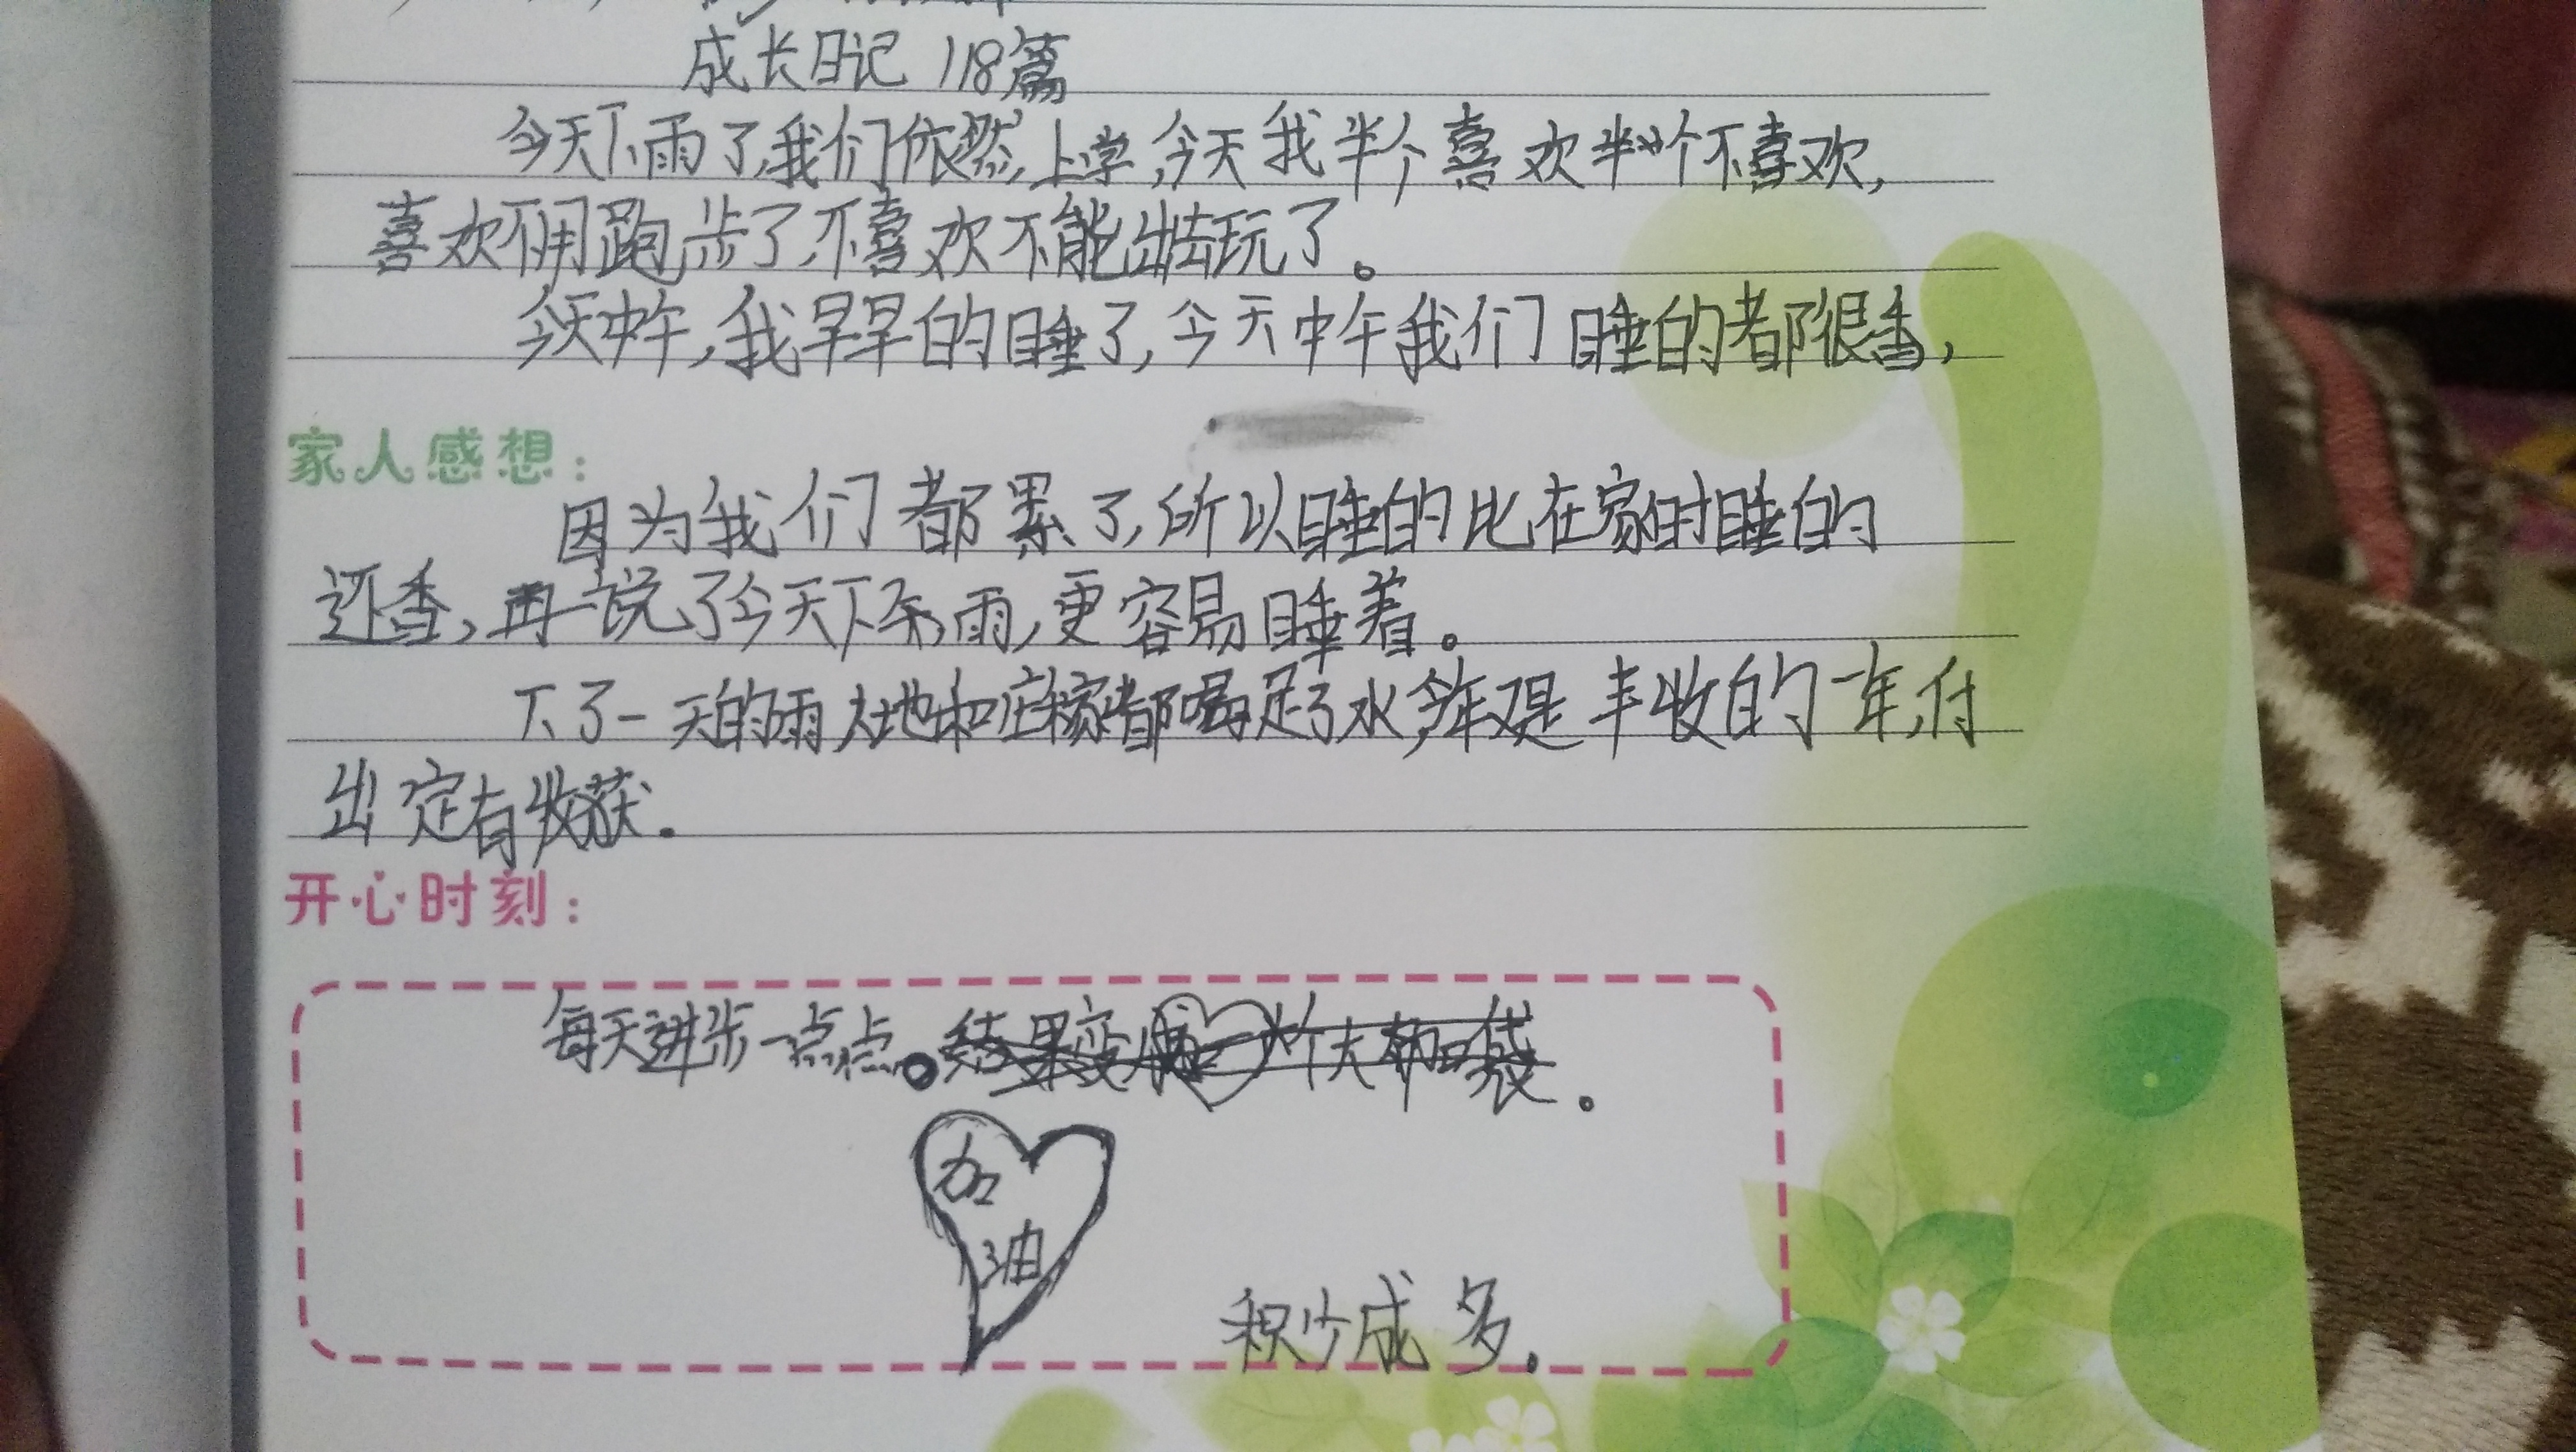 成长日记 118篇
今天下雨了,我们依然上学,今天我半个喜欢半个不喜欢,
喜欢不用跑步了,不喜欢不能出去玩了。
今天中午,我早早的睡了,今天中午我们睡的都很香,
家人感想:
因为我们都累了,所以睡的比在家时睡的
还香,再说了今天下雨,更容易睡着。
下了一天的雨,大地和庄稼都喝足了水,今年又是丰收的一年,付
出定有收获.
开心时刻:
每天进步一点点。
加
油
积少成多.